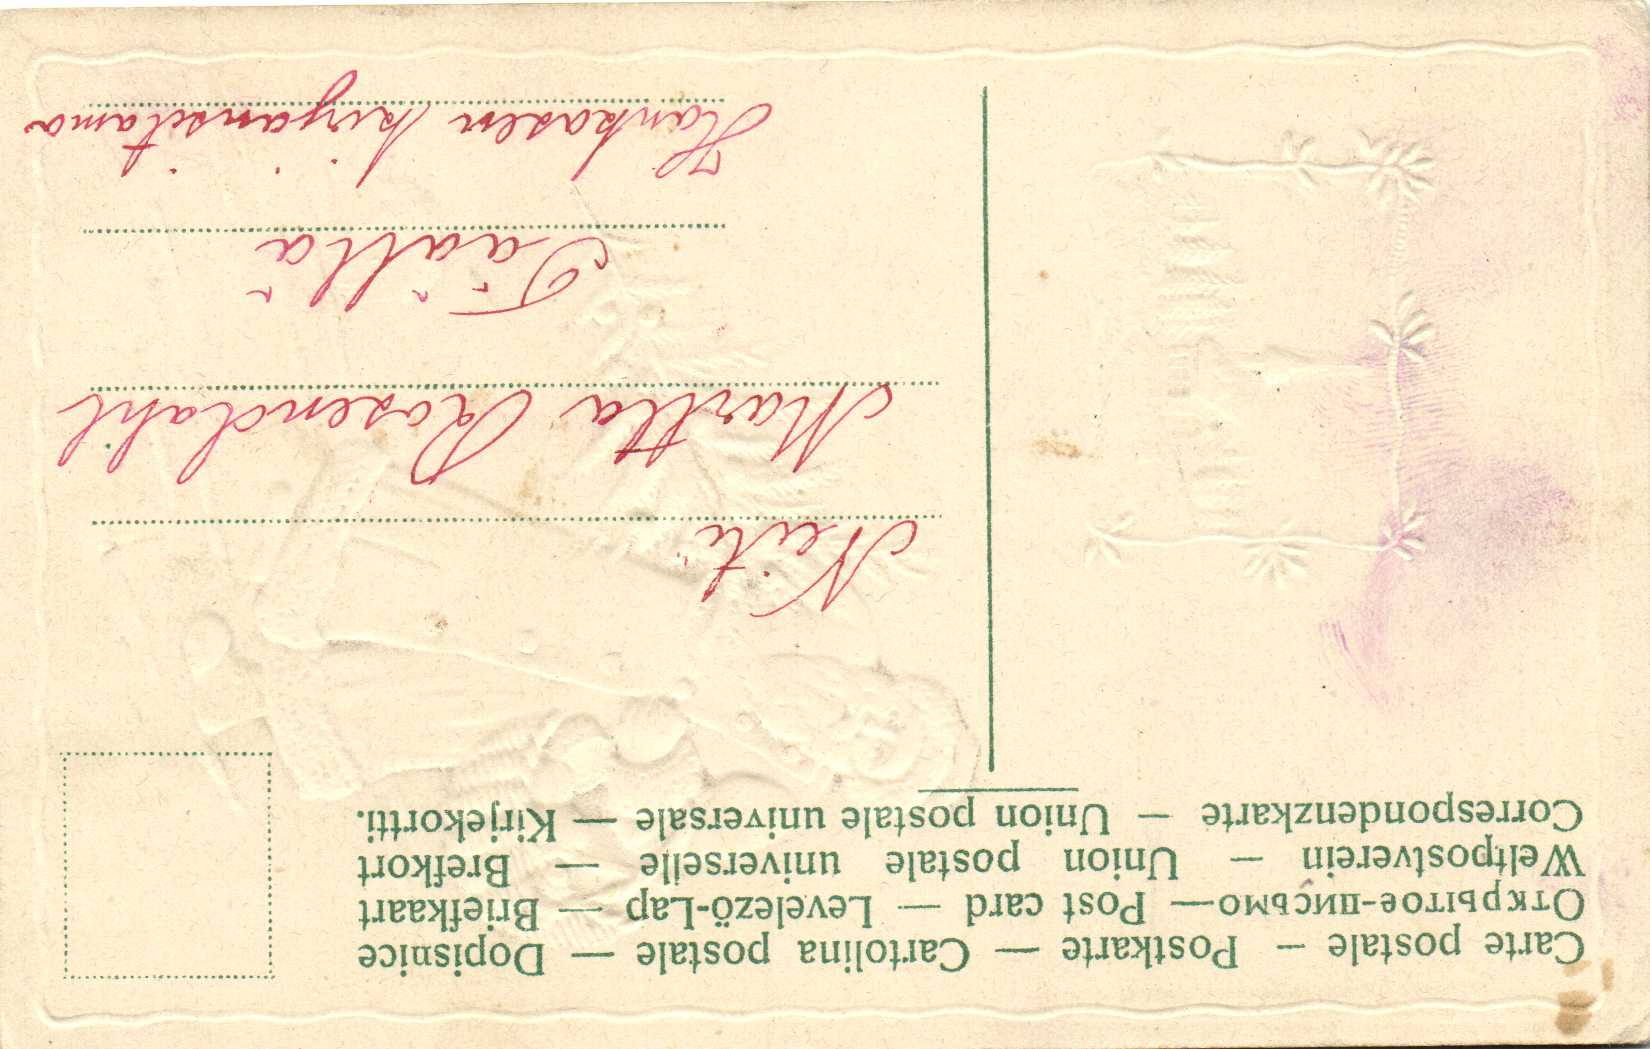 Carte postale — Postkarte — Cartolina postale — Dopisnice
Открытое-письмо — Post card — Levelező-Lap — Briefkaart
Weltpostverein — Union postale universelle — Brefkort
Correspondenzkarte — Union postale universale — Kirjekortti.
Neiti
Martta Rosendahl
Täällä
Hankasen kirjansitama